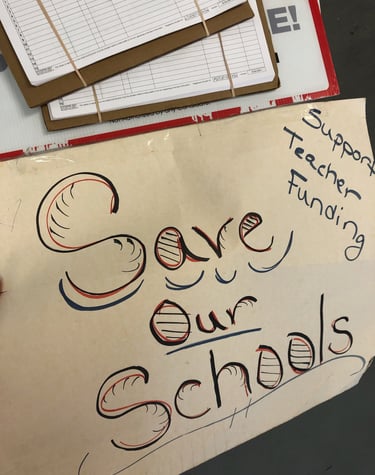 E!
Support
Teacher
Funding
Save
Our
Schools